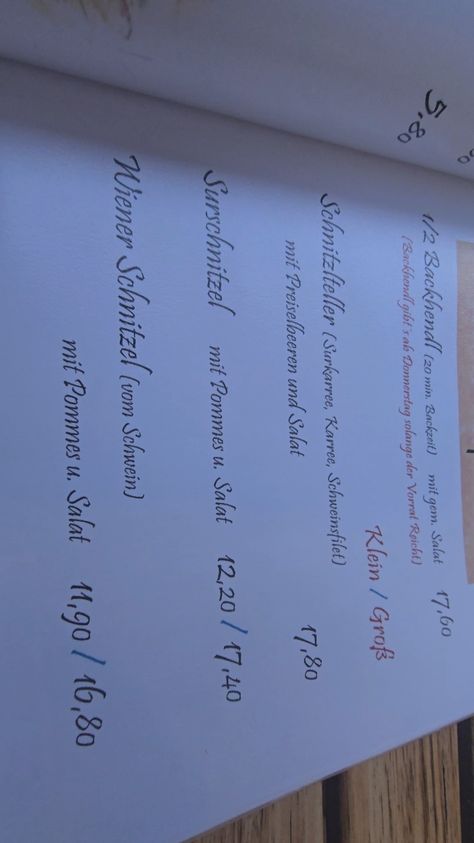 5,80
1/2 Backhendl (20 min. Backzeit) mit gem. Salat 17,60
(Backhendl gibt's ab Donnerstag solange der Vorrat Reicht)
Klein / Groß
Schnitzlteller (Surkarree, Karree, Schweinsfilet)
mit Preiselbeeren und Salat 17,80
Surschnitzel mit Pommes u. Salat 12,20 / 17,40
Wiener Schnitzel (vom Schwein)
mit Pommes u. Salat 11,90 / 16,80